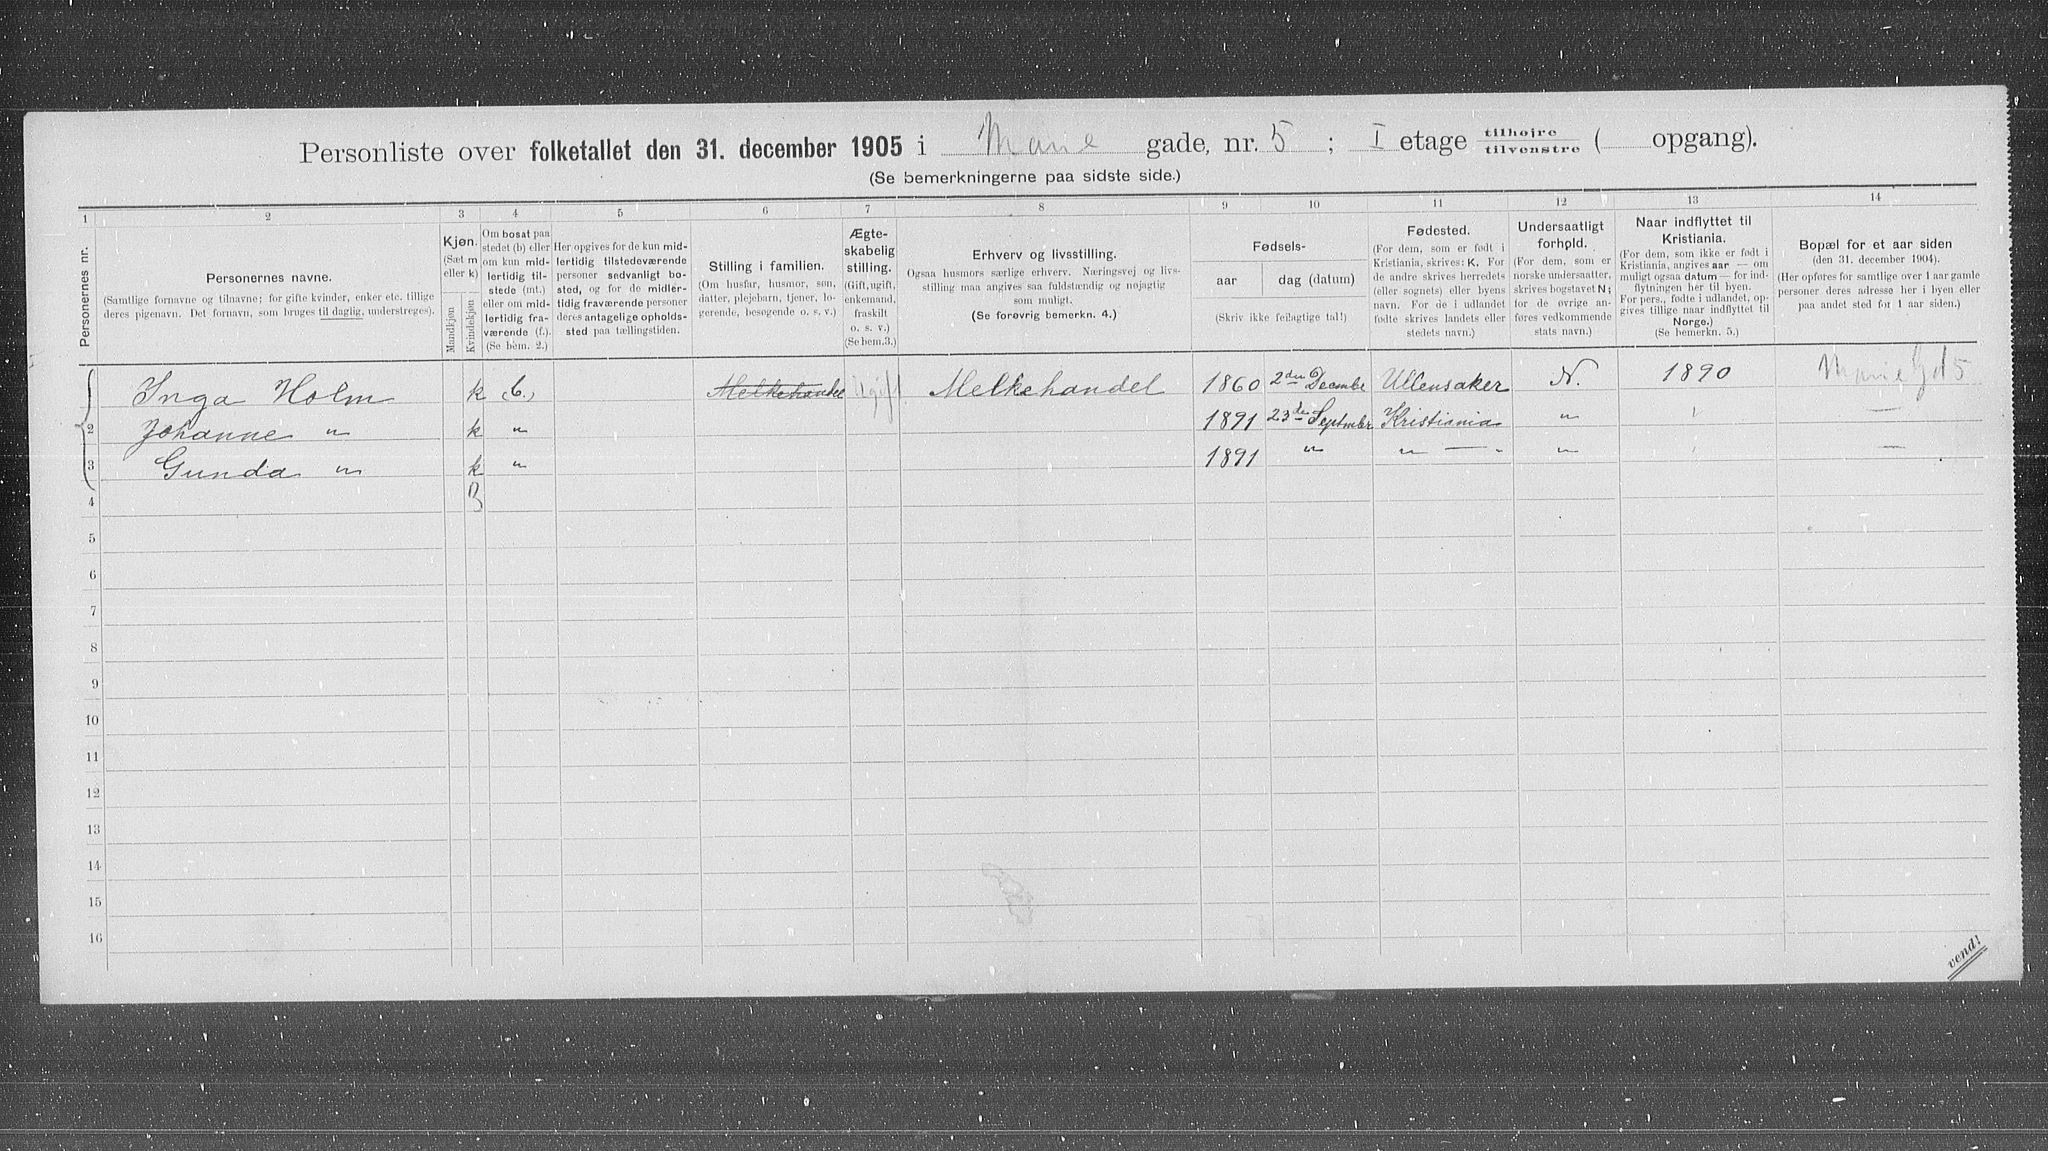 Personliste over folketallet den 31. december 1905 i Marie gade, nr. 5 ; I etage tilhøire / tilvenstre ( opgang).
(Se bemerkningerne paa sidste side.)
1 2 3 4 5 6 7 8 9 10 11 12 13 14
Personernes nr.
Personernes navne.
(Samtlige fornavne og tilnavne; for gifte kvinder, enker etc. tillige
deres pigenavn. Det fornavn, som bruges til daglig, understreges).
Kjøn.
(Sæt m
eller k)
Mandkjøn
Kvindekjøn
Om bosat paa
stedet (b) eller
om kun mid-
lertidig til-
stede (mt.)
eller om mid-
lertidig fra-
værende (f.).
(Se bem. 2.)
Her opgives for de kun mid-
lertidig tilstedeværende
personer sedvanligt bo-
sted, og for de midler-
tidig fraværende personer
deres antagelige opholds-
sted paa tællingstiden.
Stilling i familien.
(Om husfar, husmor, søn,
datter, plejebarn, tjener, lo-
gerende, besøgende o. s. v.)
Ægte-
skabelig
stilling.
(Gift, ugift,
enkemand,
fraskilt
o. s. v.)
(Se bem.3.)
Erhverv og livsstilling.
Ogsaa husmors særlige erhverv. Næringsvej og livs-
stilling maa angives saa fuldstændig og nøjagtig
som muligt.
(Se forøvrig bemerkn. 4.)
Fødsels-
aar
dag (datum)
(Skriv ikke feilagtige tal!)
Fødested.
(For dem, som er født i
Kristiania, skrives: K. For
de andre skrives herredets
(eller sognets) eller byens
navn. For de i udlandet
fødte skrives landets eller
stedets navn.)
Undersaatligt
forhold.
(For dem, som er
norske undersaatter,
skrives bogstavet N;
for de øvrige an-
føres vedkommende
stats navn.)
Naar indflyttet til
Kristiania.
(For dem, som ikke er født i
Kristiania, angives aar — om
muligt ogsaa datum — for ind-
flytningen her til byen.
For pers., fødte i udlandet, op-
gives tillige naar indflyttet til
Norge.)
(Se bemerkn. 5.)
Bopæl for et aar siden
(den 31. december 1904).
(Her opføres for samtlige over 1 aar gamle
personer deres adresse her i byen eller
paa andet sted for 1 aar siden.)
Inga Holm k (b.) Melkehandel Ugift Melkehandel 1860 2den Decembe Ullensaker N. 1890 Marie Gd 5
2 Johanne " k " 1891 23de Septmber Kristiania " —
3 Gunda " k " 1891 " " — " " —
4
5
6
7
8
9
10
11
12
13
14
15
16
vend!